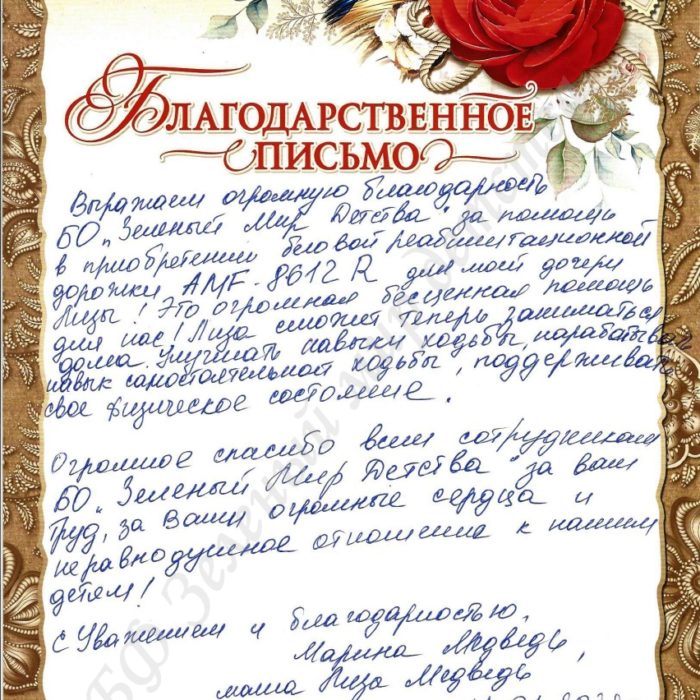 БЛАГОДАРСТВЕННОЕ
ПИСЬМО
Выражаем огромную благодарность
БО „Зеленый Мир Детства" за помощь
в приобретении беговой реабилитационной
дорожки AMF-8612 R для моей дочери
Лизы! Это огромная бесценная помощь
для нас! Лиза сможет теперь заниматься
дома. Улучшать навыки ходьбы, нарабатывать
навык самостоятельной ходьбы, поддерживать
свое физическое состояние.
Огромное спасибо всем сотрудникам
БО „Зеленый Мир Детства" за ваш
труд, за Ваши огромные сердца и
неравнодушное отношение к нашим
детям!
С Уважением и благодарностью,
Марина Медведь,
мама Лиза Медведь
БФ Зеленый мир детства